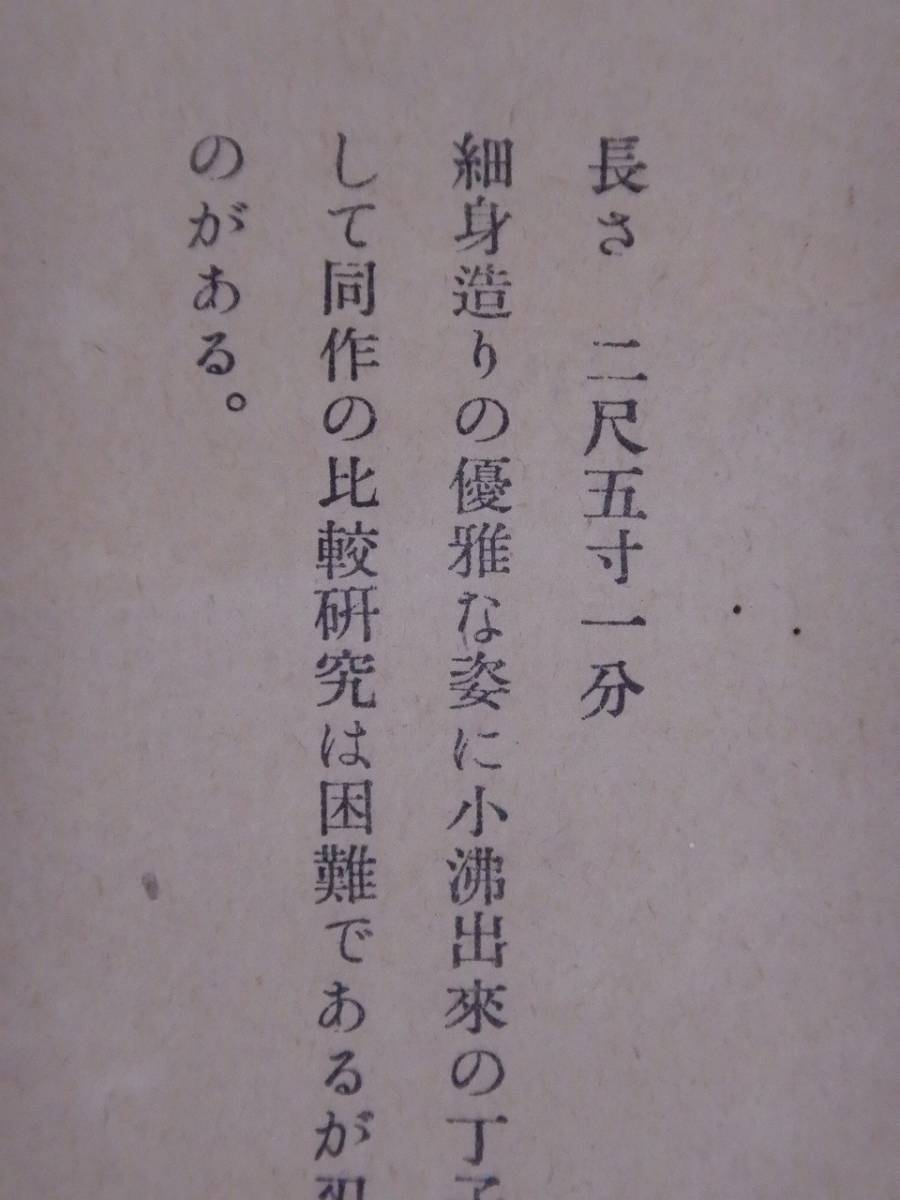 長さ　二尺五寸一分
細身造りの優雅な姿に小沸出來の丁子
して同作の比較硏究は困難であるが
のがある。